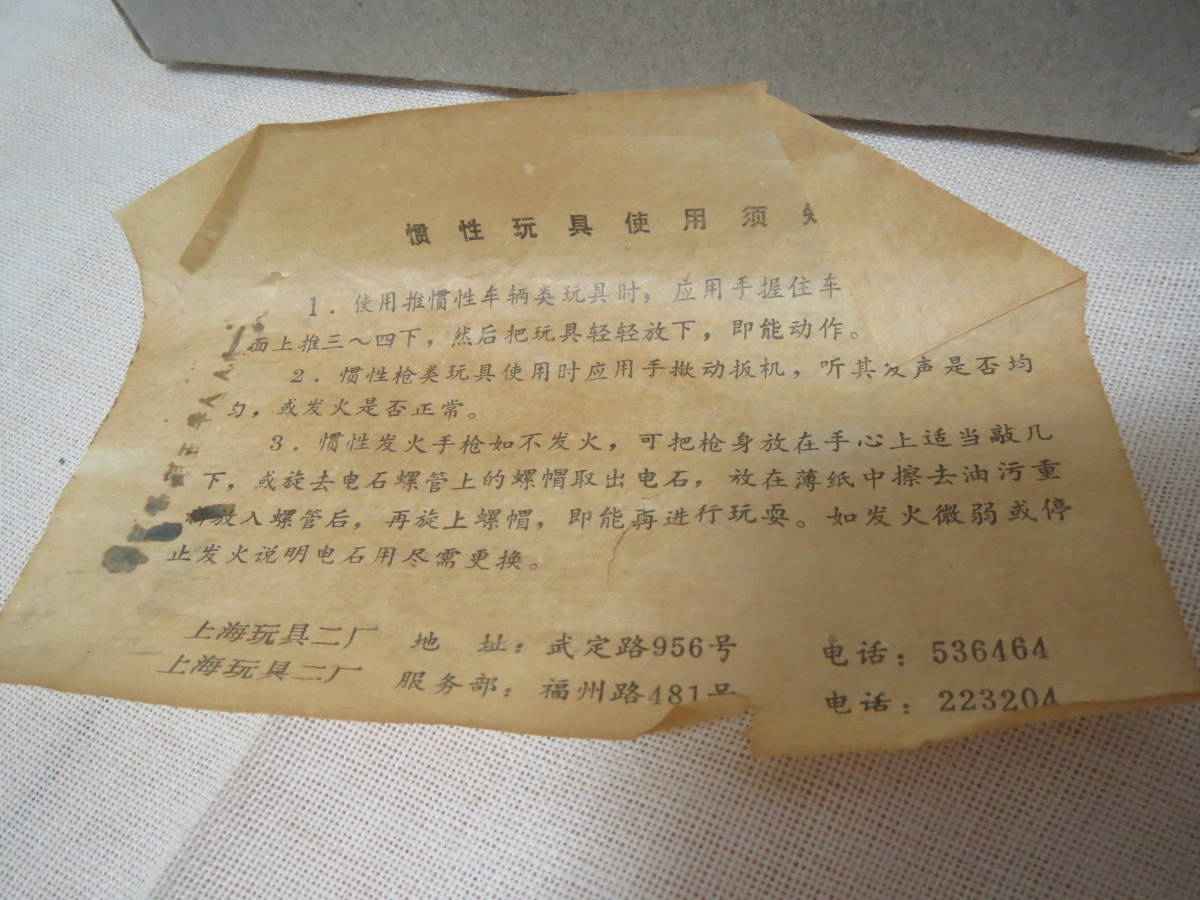 惯性玩具使用须
1．使用推惯性车辆类玩具时，应用手握住车
面上推三～四下，然后把玩具轻轻放下，即能动作。
2．惯性枪类玩具使用时应用手揿动扳机，听其发声是否均
匀，或发火是否正常。
3．惯性发火手枪如不发火，可把枪身放在手心上适当敲几
下，或旋去电石螺管上的螺帽取出电石，放在薄纸中擦去油污重
放入螺管后，再旋上螺帽，即能再进行玩耍。如发火微弱或停
止发火说明电石用尽需更换。
上海玩具二厂 地 址：武定路956号 电话：536464
上海玩具二厂 服务部：福州路481号 电话：223204